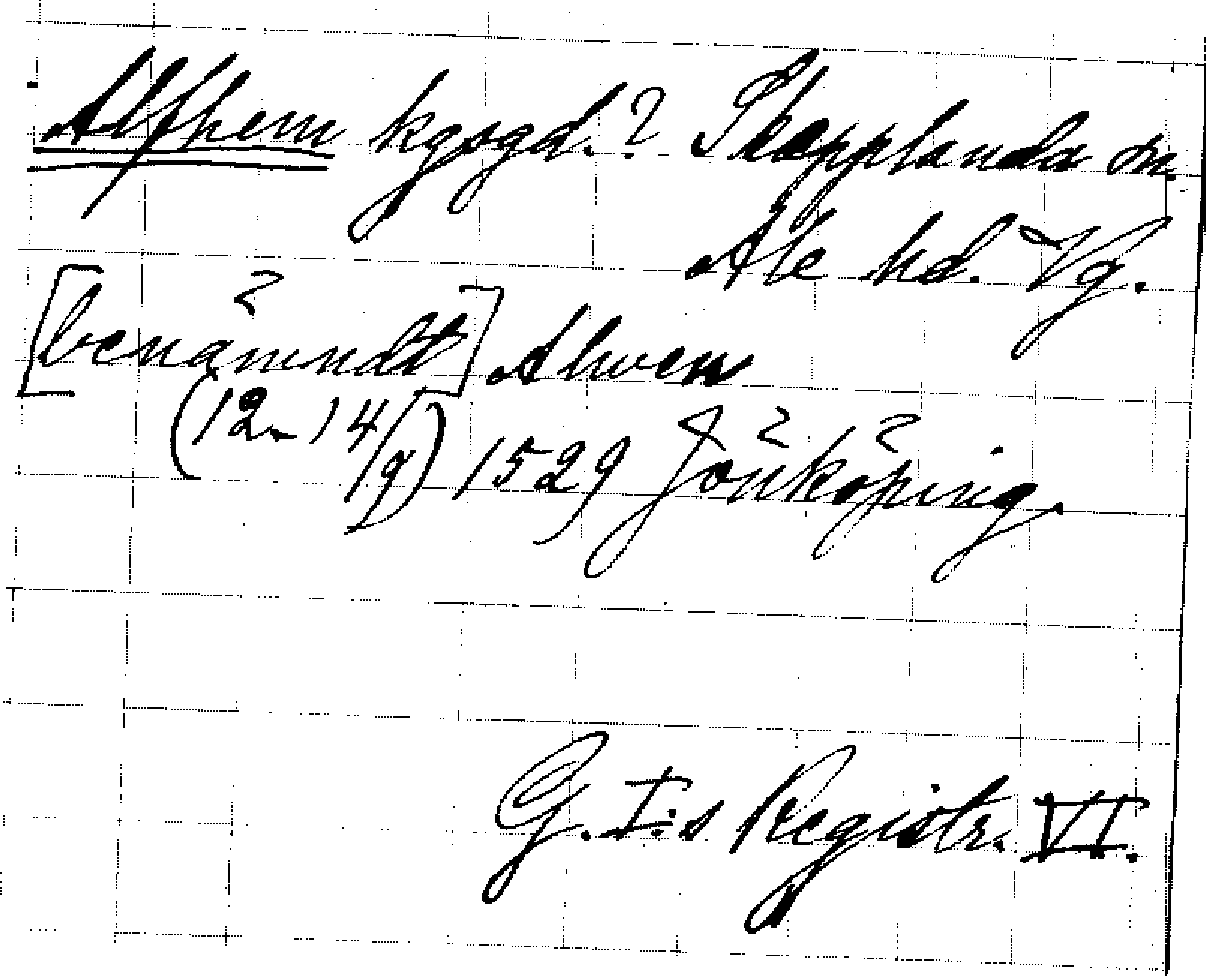 Alfhem kgsgd.? Skepplanda sn.
Ale hd. Vg.
[benämndt] Ahwen
(12-14/9) 1529 Jönköping.
G. I:s Registr. VI.